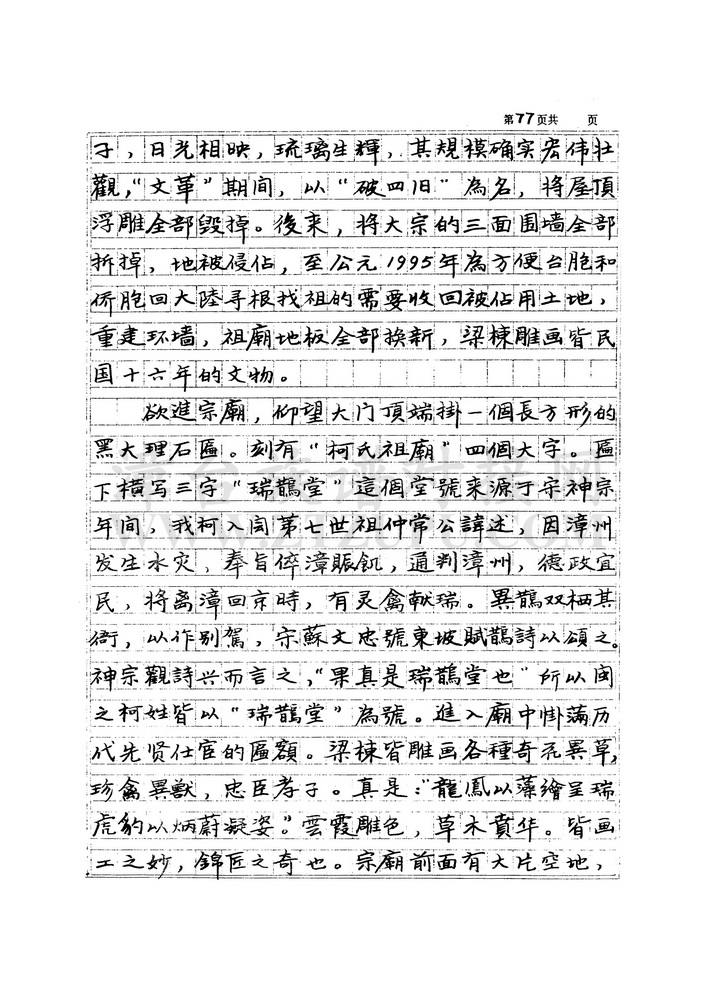 第77页共　　页
子，日光相映，琉璃生輝，其規模确实宏伟壮
觀，“文革”期间，以“破四旧”為名，将屋頂
浮雕全部毁掉。後来，将大宗的三面围墙全部
拆掉，地被侵佔，至公元1995年為方便台胞和
侨胞回大陸寻根找祖的需要收回被佔用土地，
重建环墙，祖廟地板全部换新，梁棟雕画皆民
国十六年的文物。
欲進宗廟，仰望大门頂端掛一個長方形的
黑大理石匾。刻有“柯氏祖廟”四個大字。匾
下横写三字“瑞鵲堂”這個堂號来源于宋神宗
年间，我柯入闽第七世祖仲常公諱述，因漳州
发生水灾，奉旨倅漳賑飢，通判漳州，德政宜
民，将离漳回京時，有灵禽献瑞。異鵲双栖其
衙，以作别駕，宋蘇文忠號東坡賦鵲詩以頌之。
神宗觀詩兴而言之，“果真是瑞鵲堂也”所以闽
之柯姓皆以“瑞鵲堂”為號。進入廟中掛满历
代先贤仕宦的匾額。梁棟皆雕画各種奇花異草，
珍禽異獸，忠臣孝子。真是：“龍鳳以藻繪呈瑞
虎豹以炳蔚凝姿。”雲霞雕色，草木賁华。皆画
工之妙，錦匠之奇也。宗廟前面有大片空地，